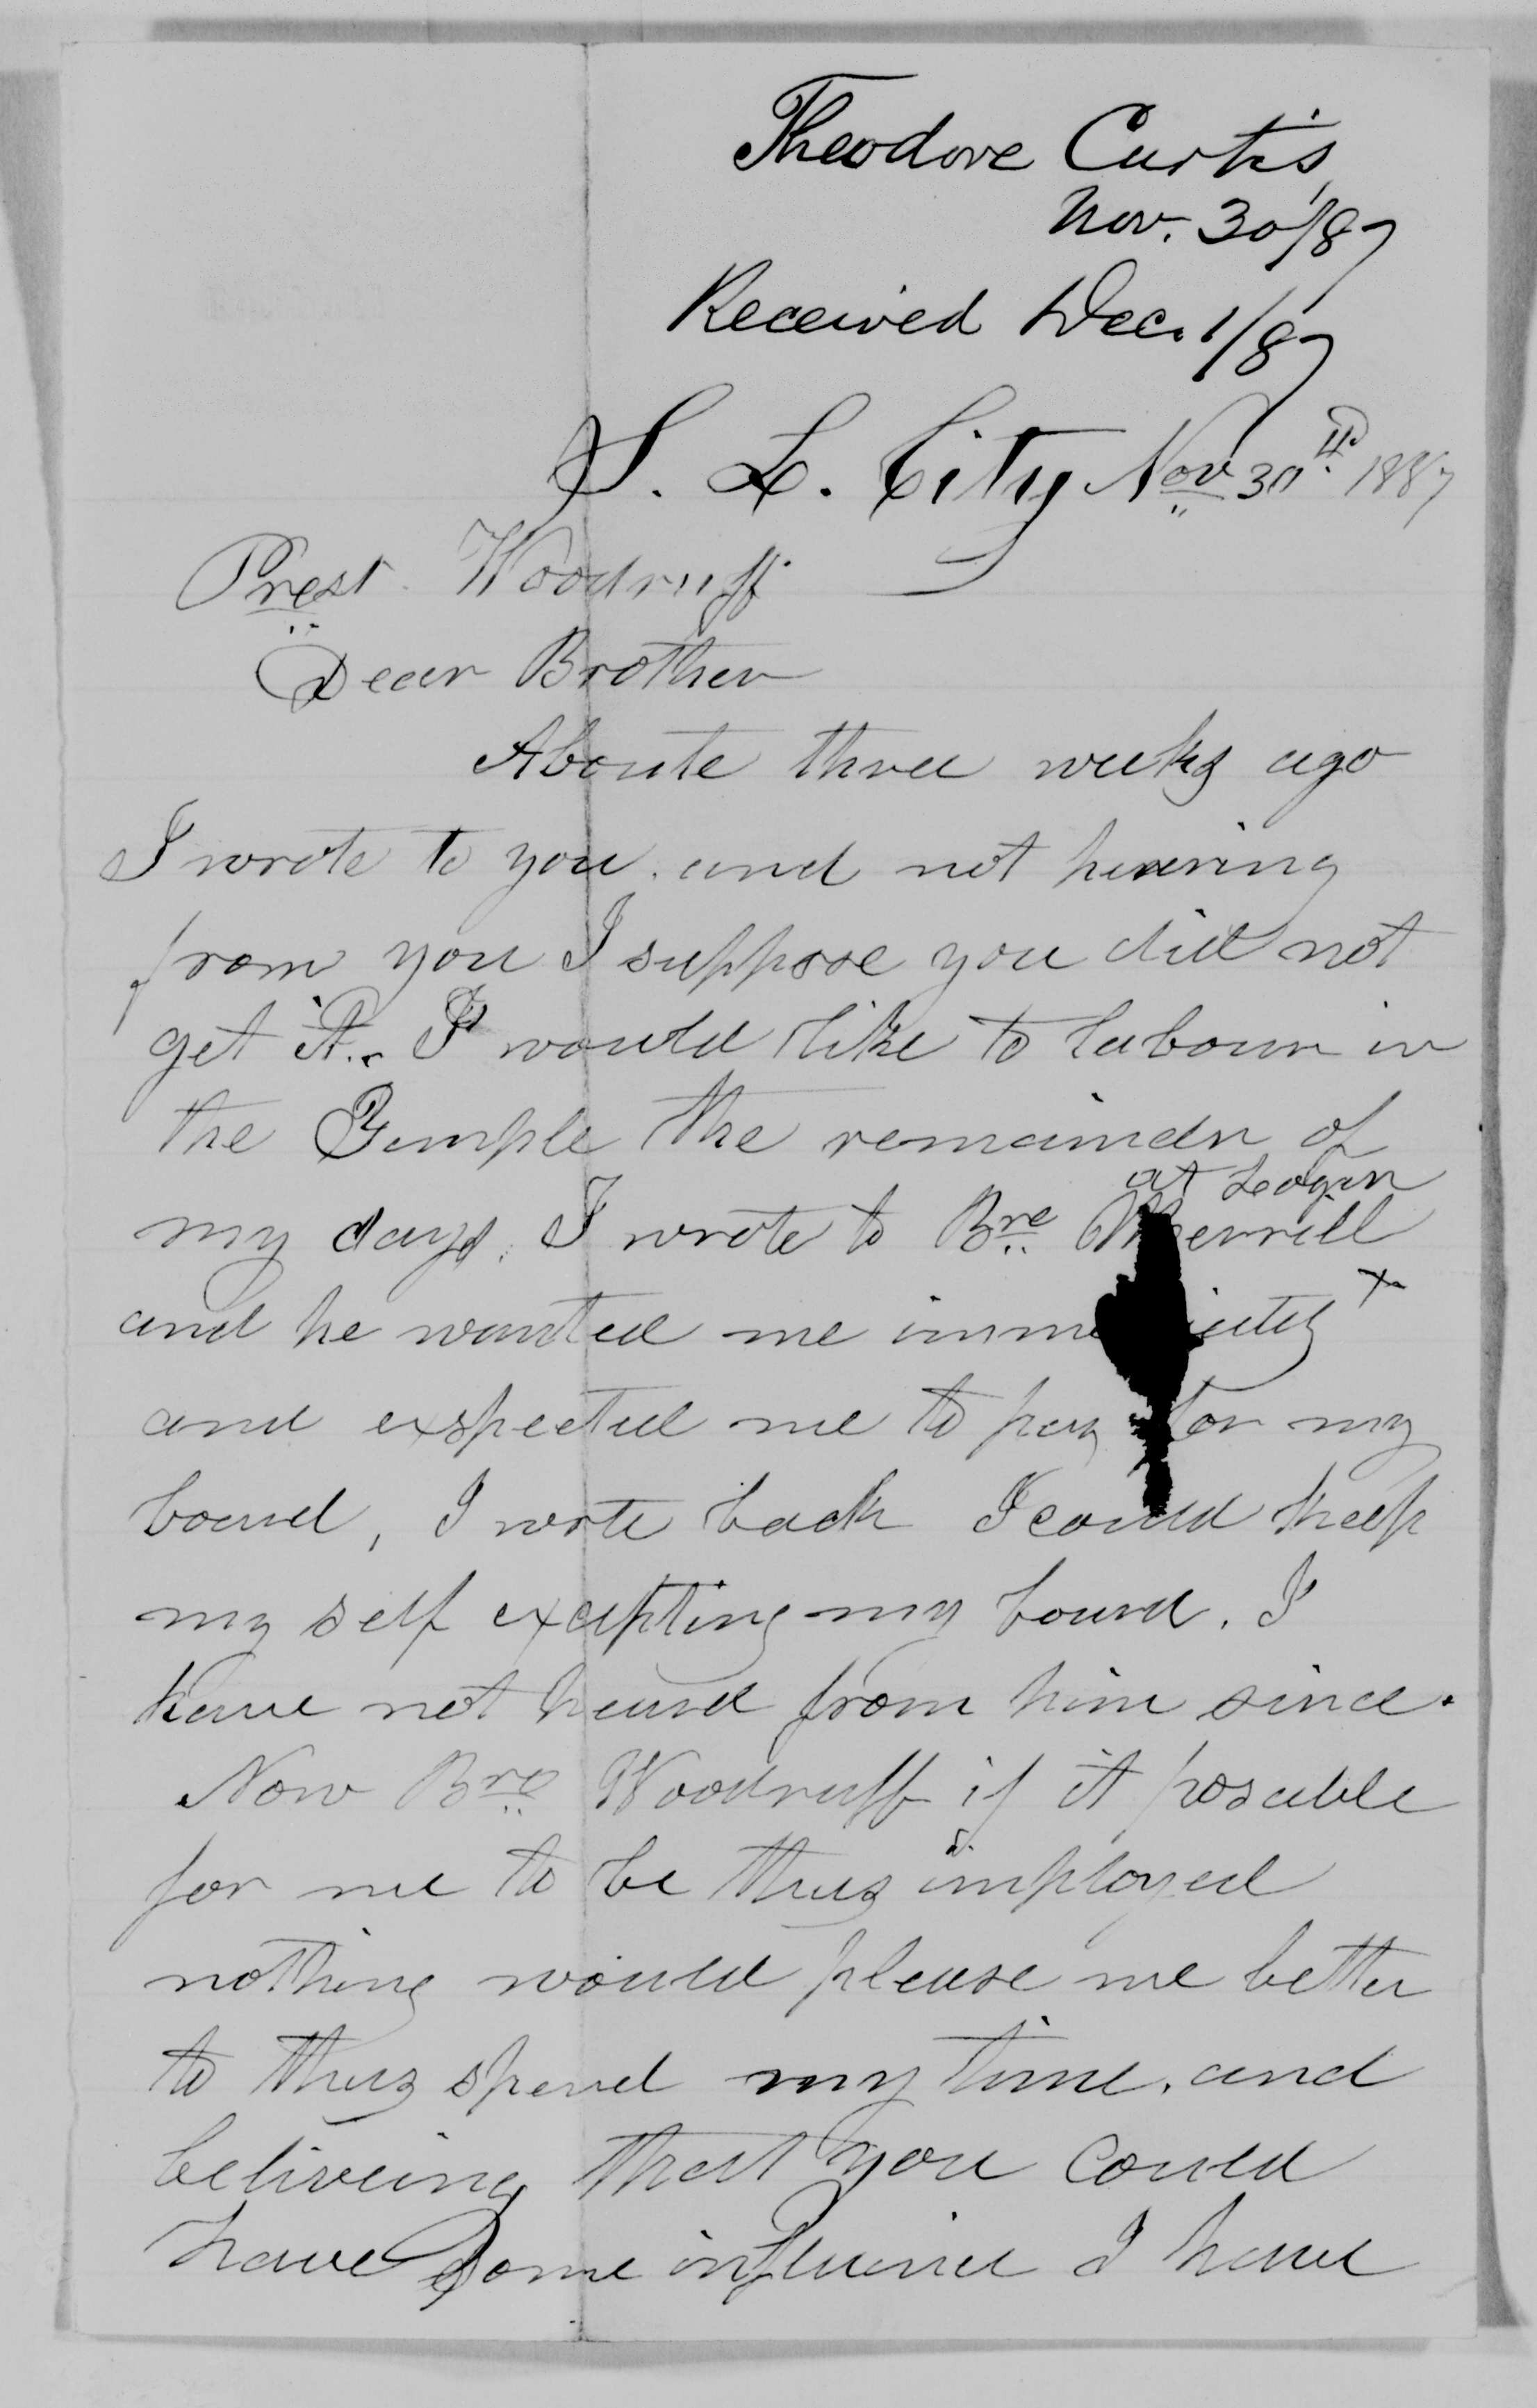 Theodore Curtis
Nov. 30/87
Received Dec. 1/87
S. L. City Nov 30th 1887
Prest. Woodruff
Dear Brother
Aboute three weeks ago
I wrote to you. and not hearing
from you I suppose you did not
get it. I would like to labour in
the Temple the remaindr of
at Logan
my days. I wrote to Bro Merrill
and he wanted me immediately x
and expected me to pay for my
board, I wrote back I could keep
my self excepting my board. I
have not heard from him since.
Now Bro Woodruff if it posable
for me to be thus imployed
nothing would please me better
to thus spend my time. and
beliveing that you could
have some influence I have